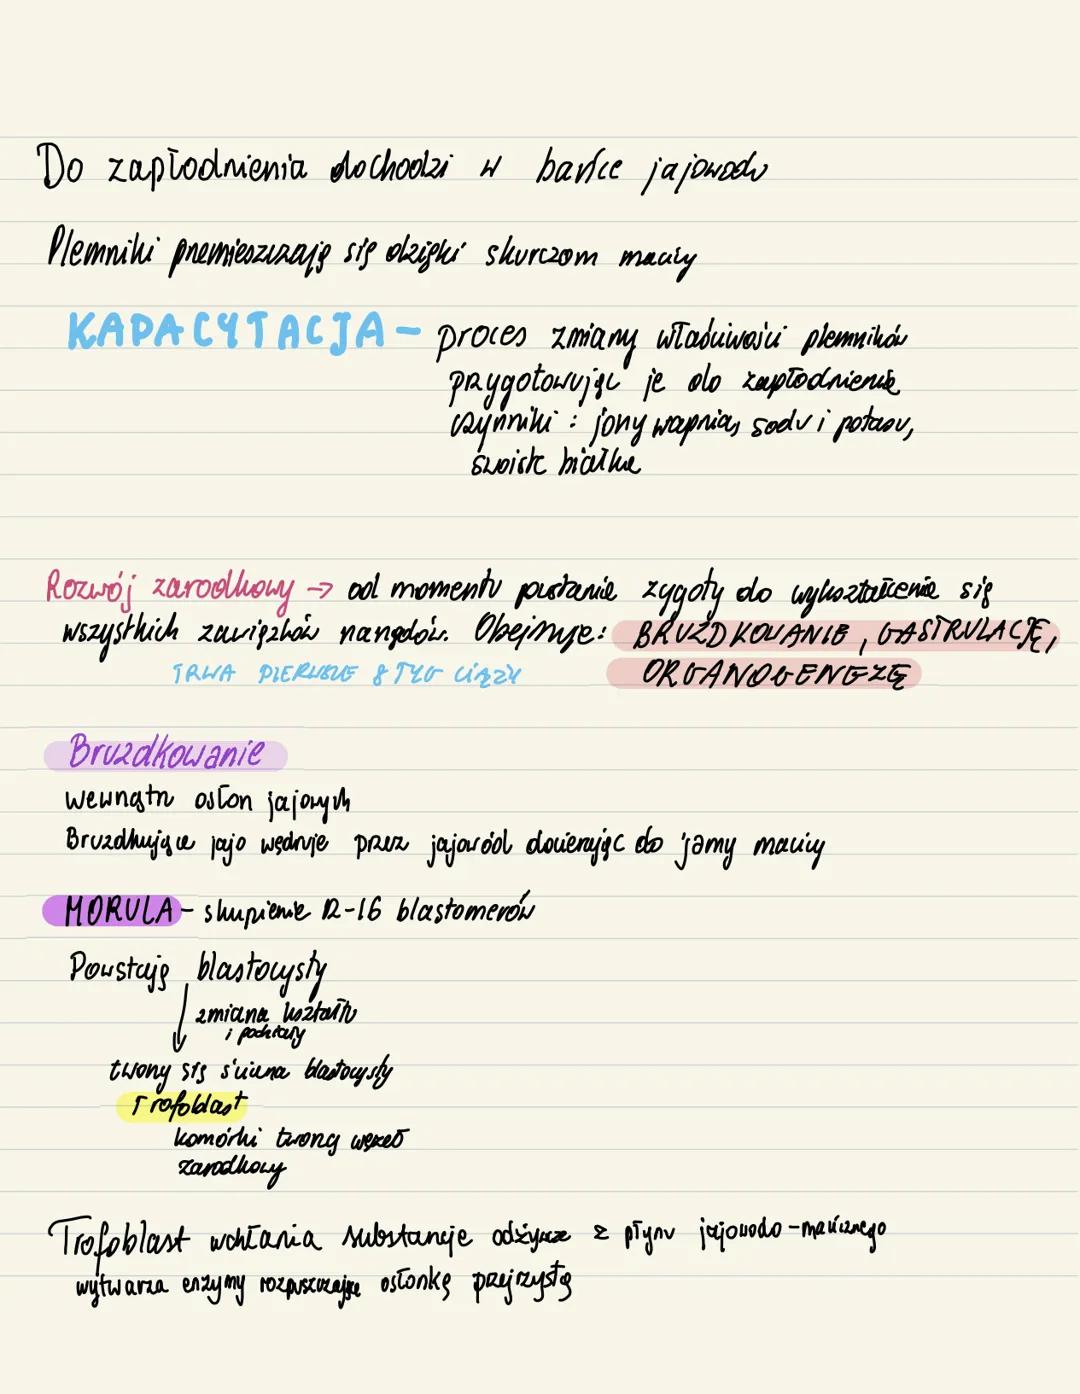 Do zapłodnienia dochodzi w bańce jajowodu
Plemniki przemieszczają się dzięki skurczom macicy
KAPACYTACJA - proces zmiany właściwości plemników
przygotowując je do zapłodnienia
czynniki : jony wapnia, sodu i potasu,
swoiste białka
Rozwój zarodkowy → od momentu powstania zygoty do wykształcenia się
wszystkich zawiązków narządów. Obejmuje: BRUZDKOWANIE, GASTRULACJĘ,
TRWA PIERWSZE 8 TYG CIĄŻY ORGANOGENEZĘ
Bruzdkowanie
wewnątrz osłon jajowych
Bruzdkujące jajo wędruje przez jajowód docierając do jamy macicy
MORULA - skupienie 12-16 blastomerów
Powstają blastocysty
zmiana kształtu
i
tworzy się ściana blastocysty
Trofoblast
komórki tworzą węzeł
zarodkowy
Trofoblast wchłania substancje odżywcze z płynu jajowodo-macicznego
wytwarza enzymy rozpuszczające osłonkę przejrzystą